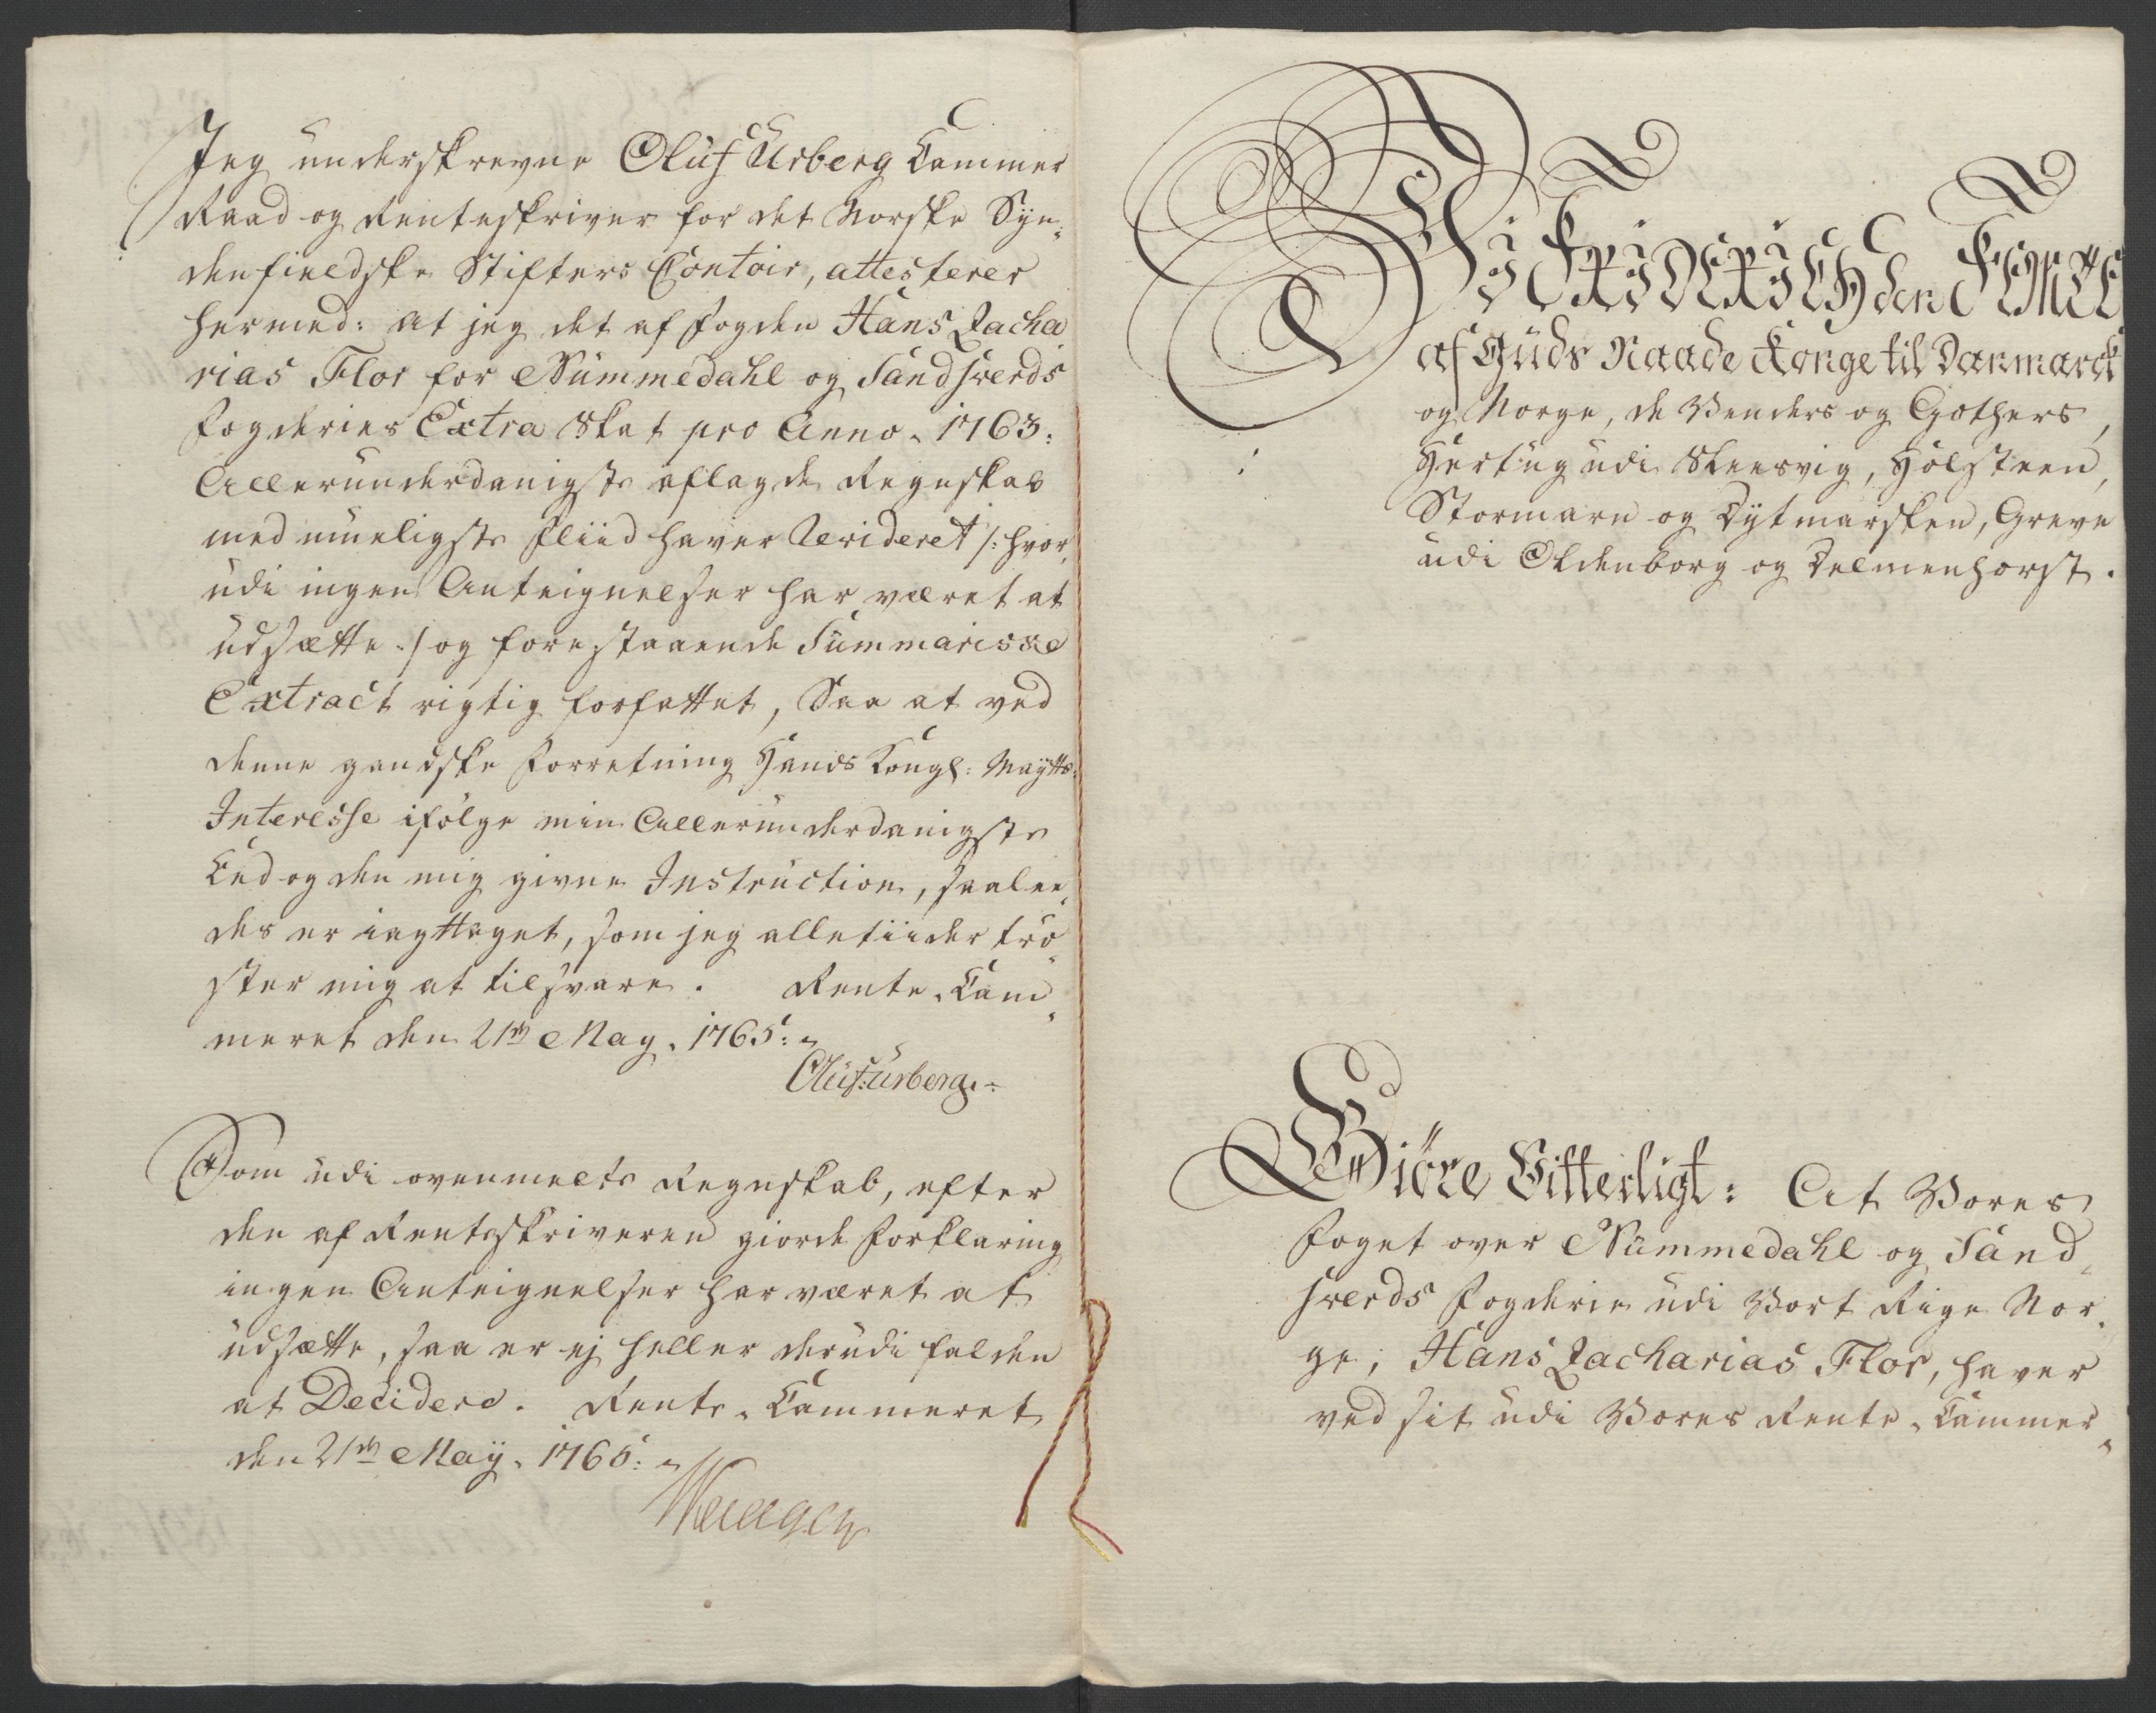 Jeg underskrevne Oluf Urberg Cammer
Raad og Renteskriver for det Norske Syn„
denfieldske Stifters Contoir, attesterer
hermed: at jeg det af Fogden Hans Zacha
rias Flor for Nummedahl og Sandsværds
Fogderies Extra Skat pro Anno 1763:
Allerunderdanigste aflagde Regnskab
med mueligste Fliid haver Revideret /: hvor„
udi ingen Anteignelser har været at
udsætte :/ og forestaaende Summariske
Extract rigtig forfattet, Saa at ved
denne gandske Forretning Hands Kongl: Maytts:
Interesse ifølge min Allerunderdanigste
Eed og den mig givne Instruction, saalee„
des er iagttaget, som jeg alletiider trø„
ster mig at tilsvare. Rente-Cam„
meret den 21de May 1765:
Oluf Urberg.
Som udi ovenmelte Regnskab, efter
den af Renteskriveren giorde Forklaring
ingen Anteignelser har været at
udsætte, saa er ej heller derudi falden
at Decidere. Rente-Cammeret
den 21de May 1765:
Vi Friderich den Femte
af Guds Naade Konge til Danmarck
og Norge, de Venders og Gothers,
Hertug udi Sleesvig, Holsteen,
Stormarn og Dytmarsken, Greve
udi Oldenborg og Delmenhorst.
Giøre Vitterligt: At Vores
Foget over Nummedahl og Sand„
sværds Fogderie udi Vort Rige Nor„
ge, Hans Zacharias Flor, haver
ved sit udi Vores Rente-Cammer„